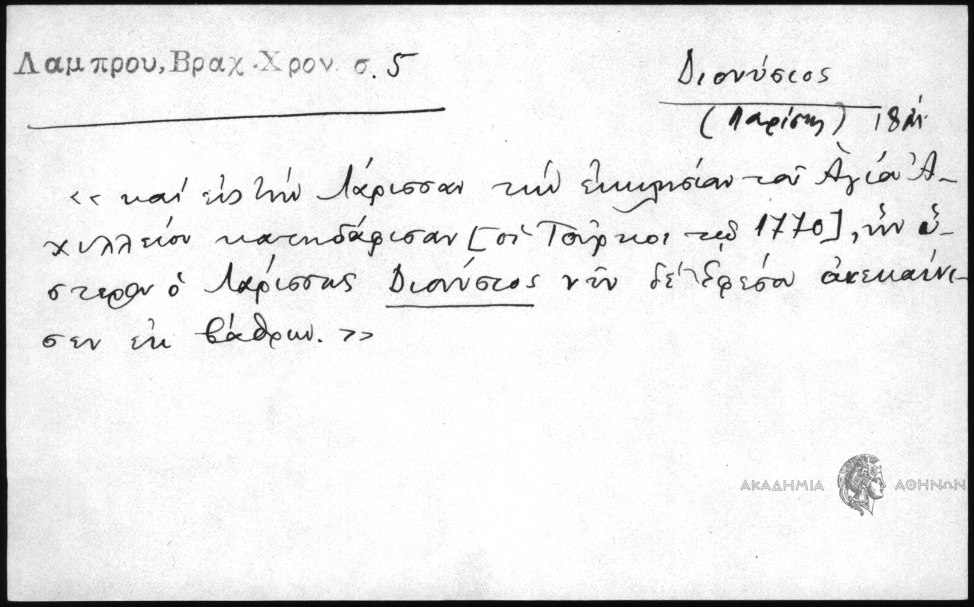 Λαμπρου, Βραχ. Χρον. σ. 5
Διονύσιος
(Λαρίσης) 18
«καί εἰς τήν Λάρισσαν τήν ἐκκλησίαν τοῦ Ἁγίου Ἀ-
χιλλείου κατηδάφισαν [οἱ Τοῦρκοι τῷ 1770], ἥν ὕ-
στερον ὁ Λαρίσσης Διονύσιος νῦν δέ Ἐφέσου ἀνεκαίνι-
σεν ἐκ βάθρων.»
ΑΚΑΔΗΜΙΑ ΑΘΗΝΩΝ